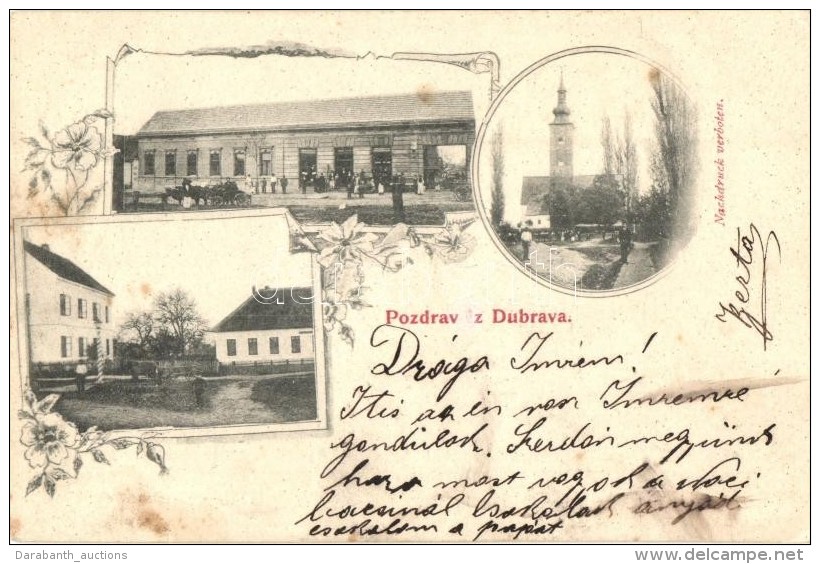 Nachdruck verboten.
Pozdrav iz Dubrava.
Berta
Drága Imrém!
Itis az én van Imremre
gondulok. Szerdán megyünk
haza most vagyok a Náci
bacsinál Csokolak anyád
csokolom a papát
Darabanth_auctions
www.delcampe.net